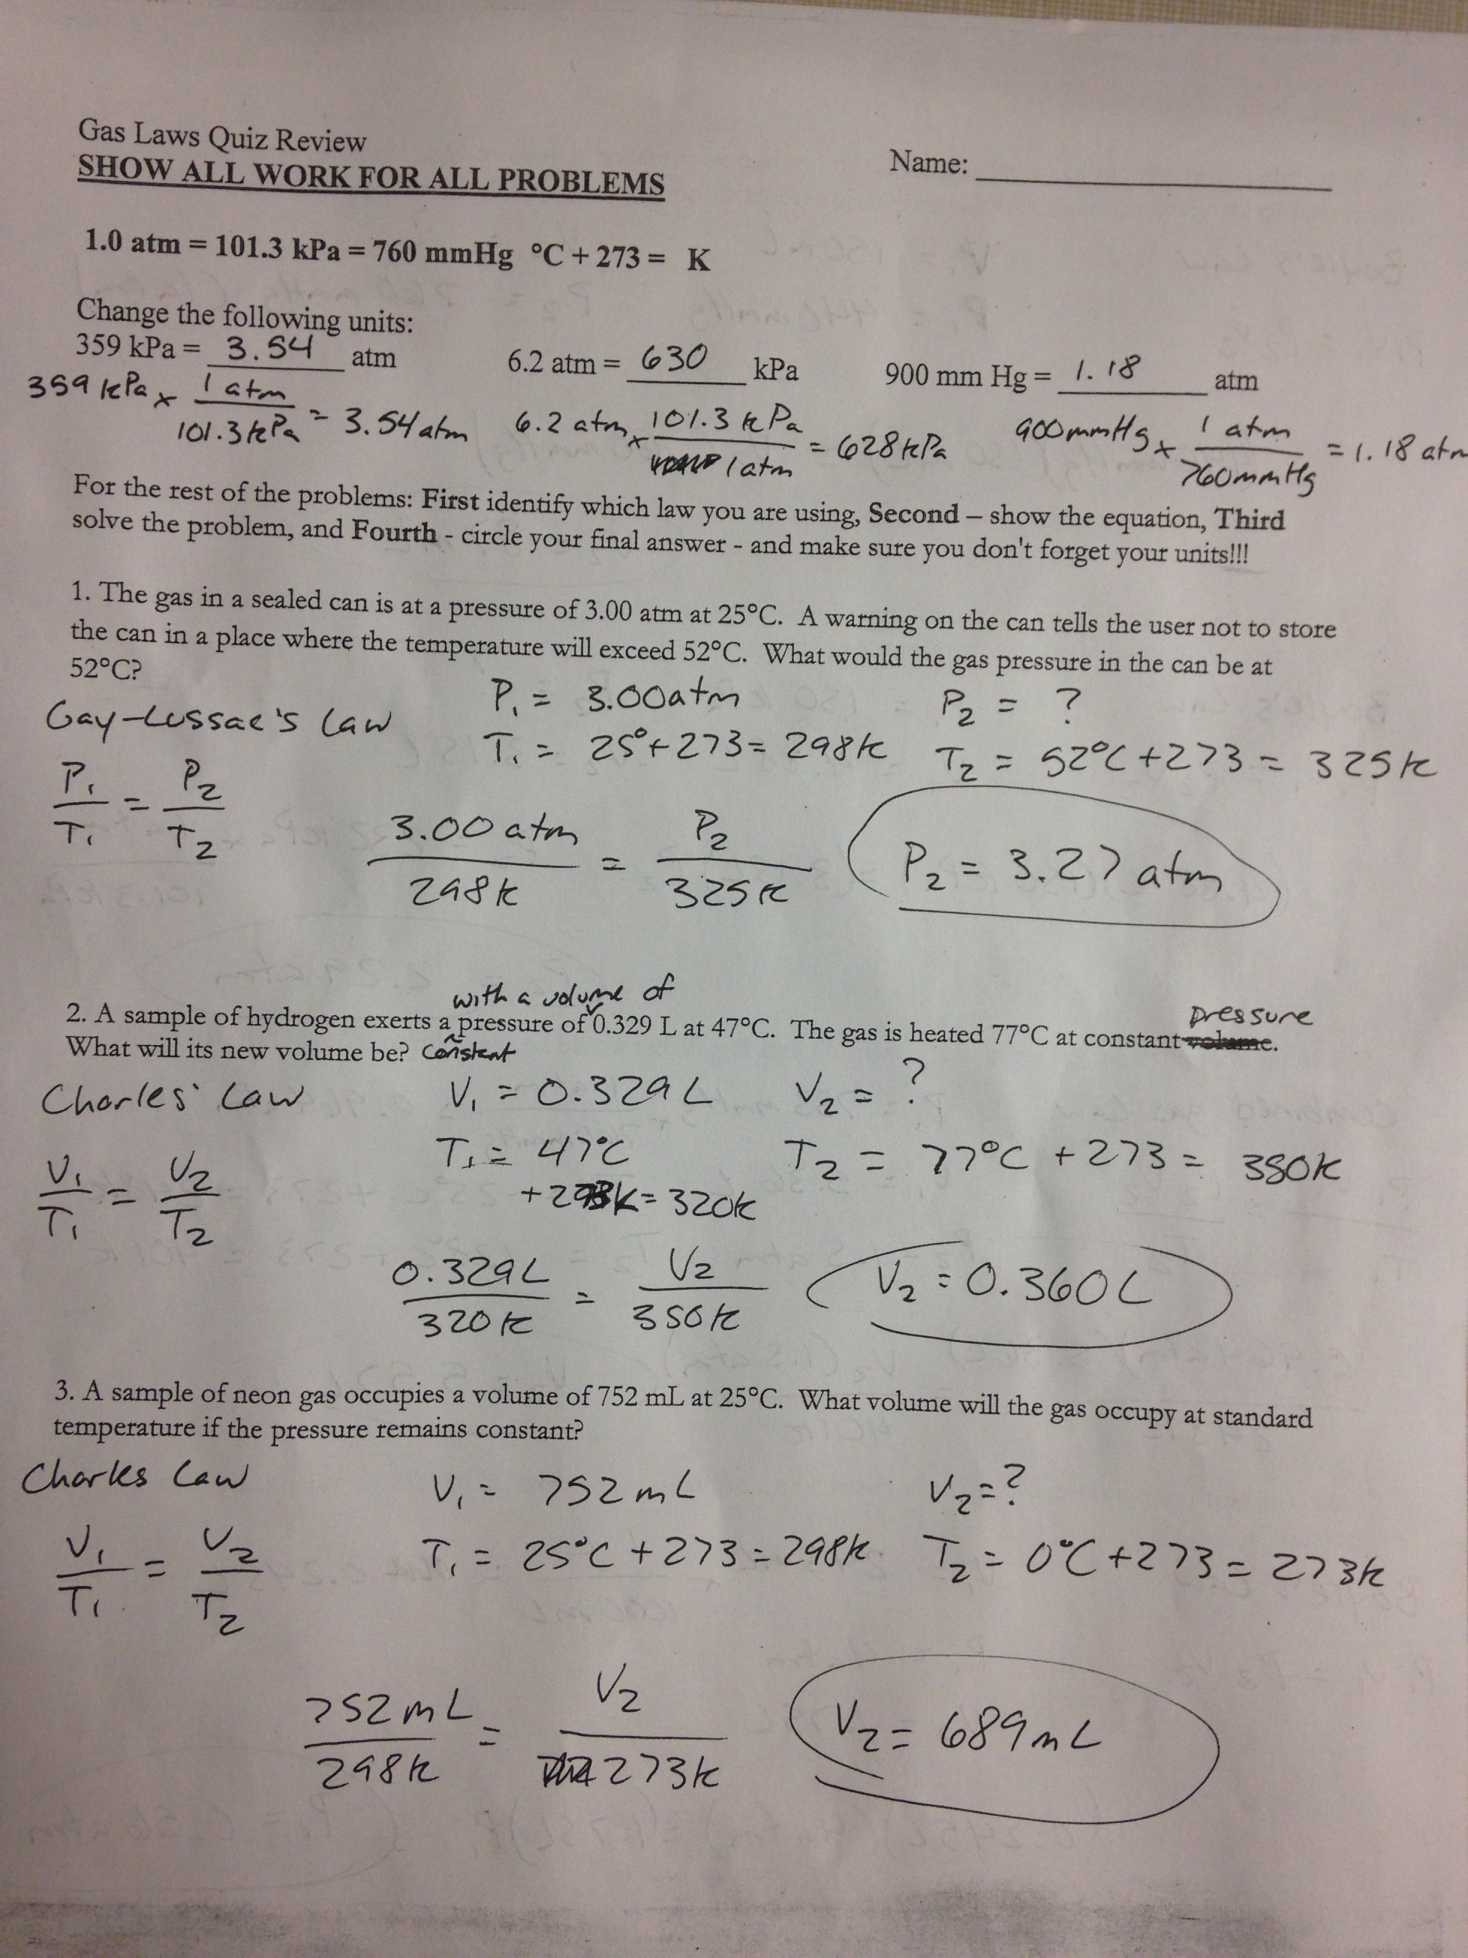 Gas Laws Quiz Review
Name:
SHOW ALL WORK FOR ALL PROBLEMS
1.0 atm = 101.3 kPa = 760 mmHg °C + 273 = K
Change the following units:
359 kPa = 3.54 atm 6.2 atm = 630 kPa 900 mm Hg = 1.18 atm
359 kPa x 1 atm / 101.3 kPa = 3.54 atm 6.2 atm x 101.3 kPa / 1 atm = 628 kPa 900 mmHg x 1 atm / 760 mmHg = 1.18 atm
For the rest of the problems: First identify which law you are using, Second – show the equation, Third
solve the problem, and Fourth - circle your final answer - and make sure you don't forget your units!!!
1. The gas in a sealed can is at a pressure of 3.00 atm at 25°C. A warning on the can tells the user not to store
the can in a place where the temperature will exceed 52°C. What would the gas pressure in the can be at
52°C?
P₁ = 3.00 atm P₂ = ?
Gay-Lussac's Law
T₁ = 25° + 273 = 298 K T₂ = 52°C + 273 = 325 K
P₁ / T₁ = P₂ / T₂
3.00 atm / 298 K = P₂ / 325 K
P₂ = 3.27 atm
with a volume of
pressure
2. A sample of hydrogen exerts a pressure of 0.329 L at 47°C. The gas is heated 77°C at constant volume.
What will its new volume be? constant
Charles' Law V₁ = 0.329 L V₂ = ?
T₁ = 47°C T₂ = 77°C + 273 = 350 K
+ 273 K = 320 K
V₁ / T₁ = V₂ / T₂
0.329 L / 320 K = V₂ / 350 K
V₂ = 0.360 L
3. A sample of neon gas occupies a volume of 752 mL at 25°C. What volume will the gas occupy at standard
temperature if the pressure remains constant?
Charles Law V₁ = 752 mL V₂ = ?
T₁ = 25°C + 273 = 298 K T₂ = 0°C + 273 = 273 K
V₁ / T₁ = V₂ / T₂
752 mL / 298 K = V₂ / 273 K
V₂ = 689 mL